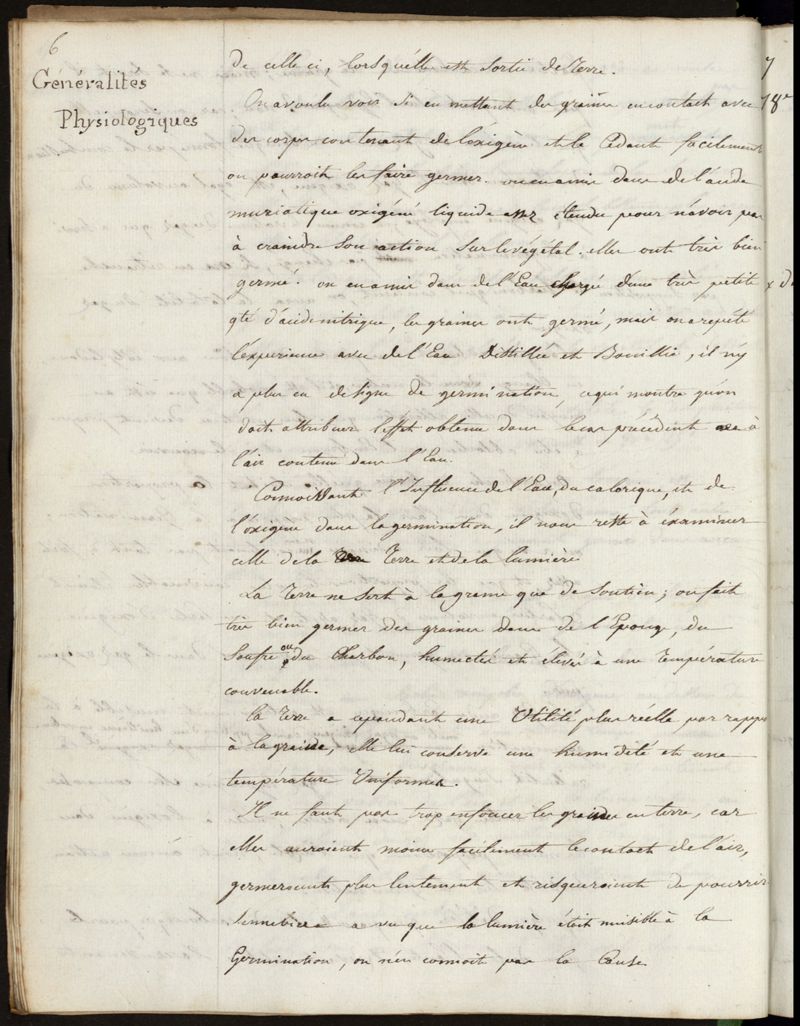 6
Genéralités
Physiologiques
de celle ci, lorsqu'elle est sortie de terre.
On a voulu voir si en mettant des graines en contact avec
des corps contenant de l'oxigène et le Cédant facilement
on pourroit les faire germer. on en a mis dans de l'acide
muriatique oxigéné liquide assez étendu pour n'avoir pas
à craindre son action sur le vegetal. elles ont très bien
germé. on en a mis dans de l'Eau chargée d'une très petite
qté d'acide nitrique, les graines ont germé, mais on a repété
l'experience avec de l'Eau Distillée et Bouillie, il n'y
a plus eu de signe de germination, ce qui montre qu'on
doit attribuer l'effet obtenu dans le cas précédent à
l'air contenu dans l'Eau.
Connoissant l'Influence de l'Eau, du calorique, et de
l'oxigène dans la germination, il nous reste à examiner
celle de la Terre et de la lumière
La Terre ne sert à la graine que de Soutien; on fait
très bien germer des graines dans de l'Eponge, du
Soufre ou du Charbon, humecté et élevé à une température
convenable.
la Terre a cependant une Utilité plus réelle par rappor
à la graine, elle lui conserve une humidité et une
température Uniformes.
Il ne faut pas trop enfoncer les graines en terre, car
elles auroient moins facilement le contact de l'air,
germeroient plus lentement et risqueroient de pourrir
Sennebier a vu que la lumière étoit nuisible à la
Germination, on n'en connoit pas la Cause
7
18e